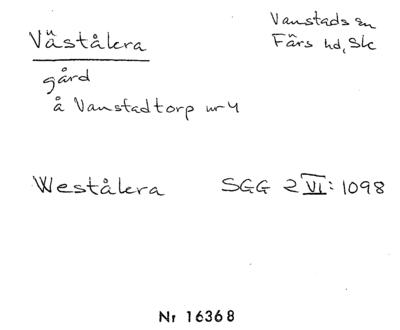 Väståkra
Vanstads sn
Färs hd, Sk
gård
å Vanstadtorp nr 4
Weståkra SGG 2 VI: 1098
Nr 16368